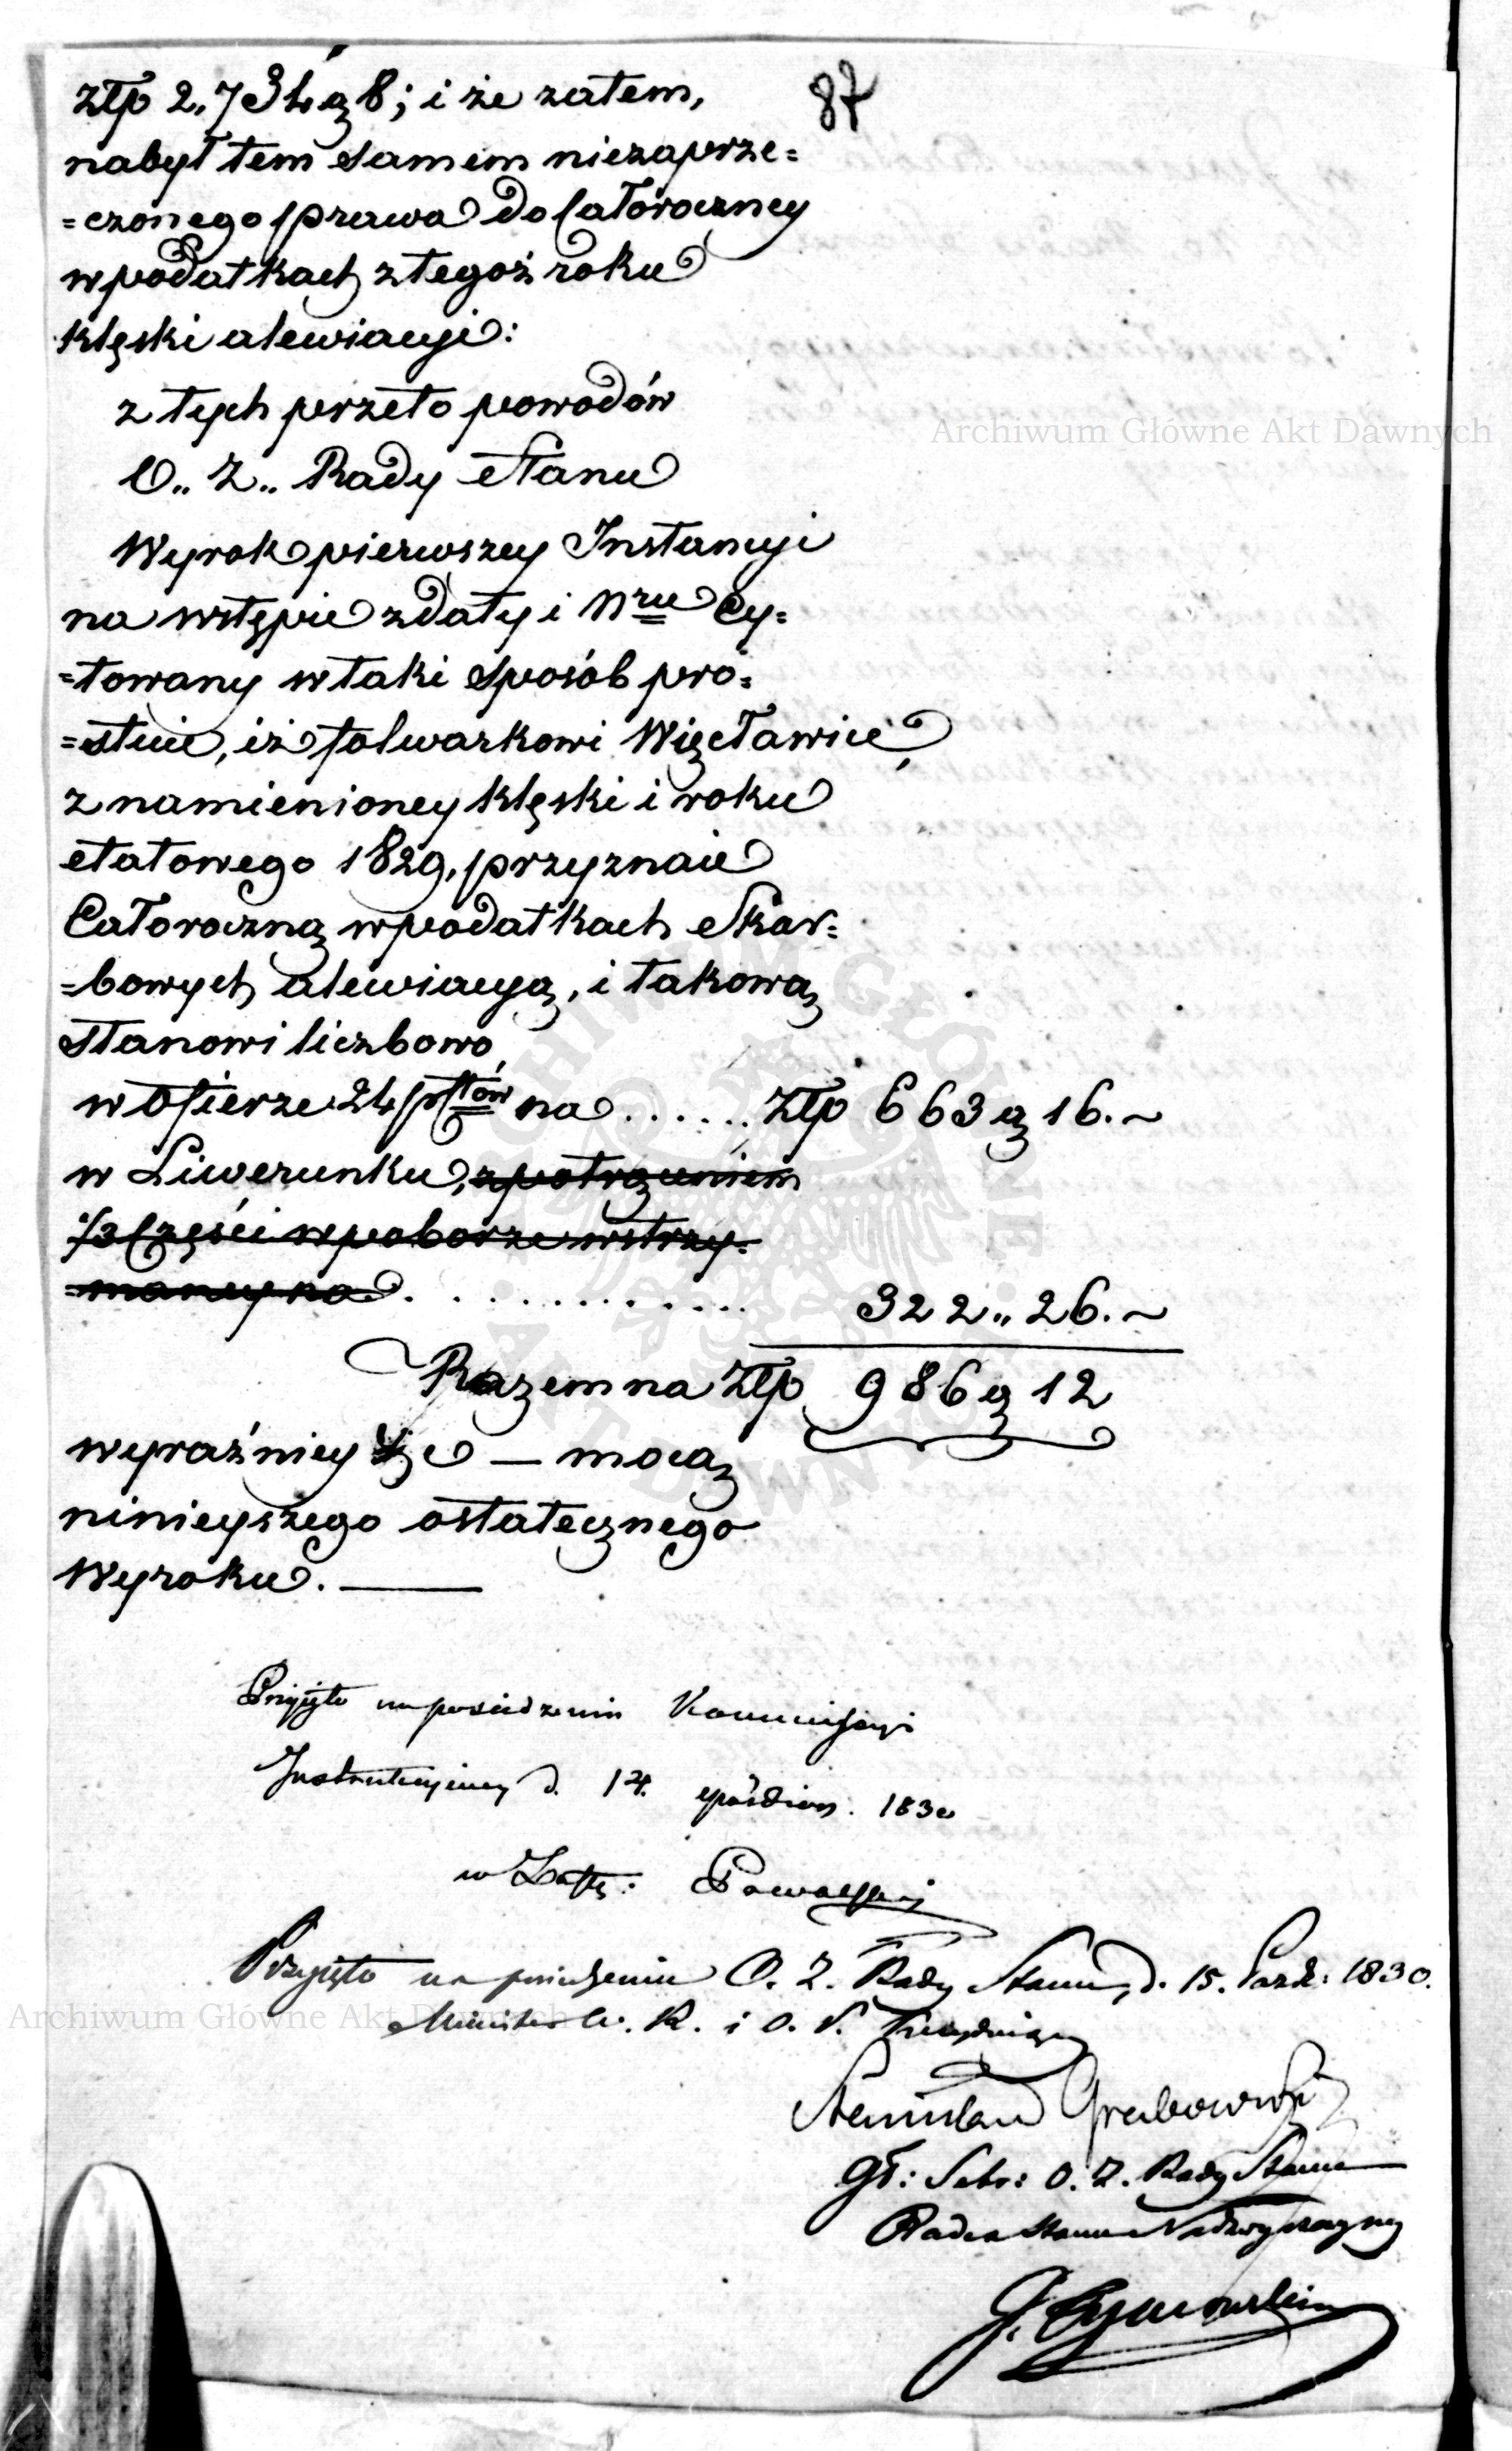 87
złp 2,734 g 8; i że zatem,
nabył tem samem niezaprze=
=czonego prawa do całoroczney
w podatkach z tegoż roku
klęski alewiacyi:
z tych przeto powodów
O.. Z.. Rady Stanu
Wyrok pierwszey Instancyi
na wstępie z daty i Nru cy=
=towany w taki sposób pro=
=stuie, iż folwarkowi Więcławice,
z namienioney klęski i roku
etatowego 1829, przyznaie
Całoroczną w podatkach Skar=
=bowych alewiacyą, i takową
stanowi liczbowo,
w Ofierze 24 pttów na ...... złp 663 g 16.~
w Liwerunku, z potrąceniem
1/3 Części w poborze wstrzy=
=maney na . . . . . . . . . . . 322 „ 26.~
Razem na złp 986 g 12
wyraźniey — mocą
ninieyszego ostatecznego
Wyroku. ———
Przyięto na posiedzeniu Kommissyi
Instrukcyiney d. 14. paździer. 1830
w Zastę:
Przyięto na posiedzeniu O. Z. Rady Stanu, d. 15. Paźdź: 1830.
Minister W. R. i O. P. Prezyduiący
Stanisław Grabowski
Gł: Sekr: O. Z. Rady Stanu
Radca Stanu Nadzwyczayny
Archiwum Główne Akt Dawnych
Archiwum Główne Akt Dawnych
ARCHIWUM GŁÓWNE AKT DAWNYCH